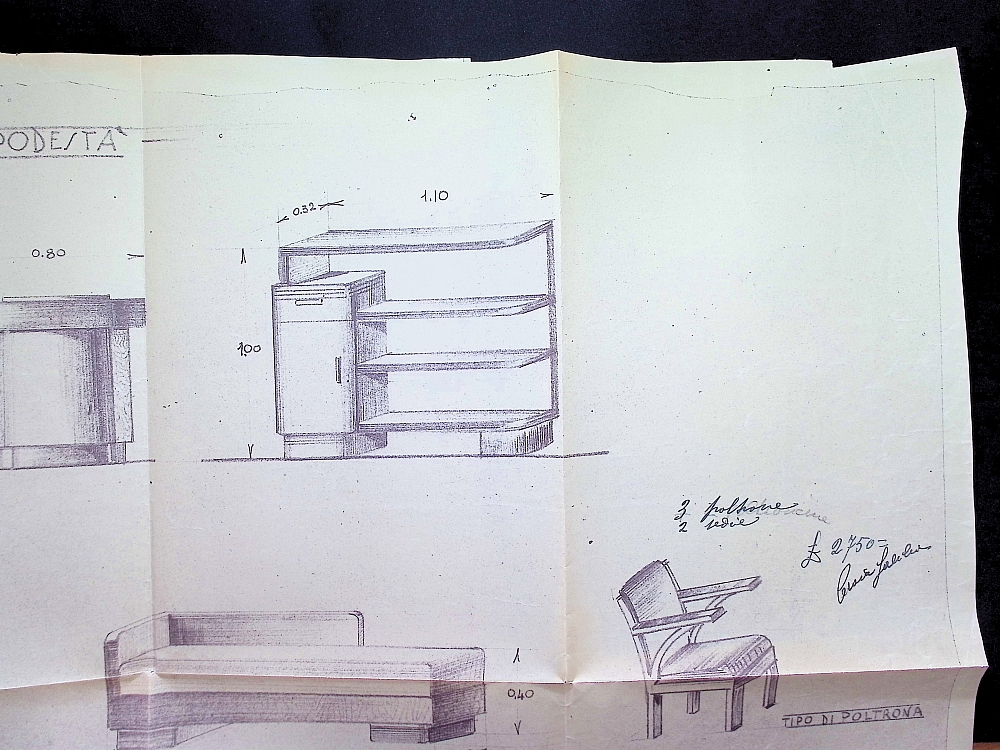 PODESTA'
0.32
1.10
0.80
1.00
3 poltrone
2 sedie
£ 2750=
0,40
TIPO DI POLTRONA